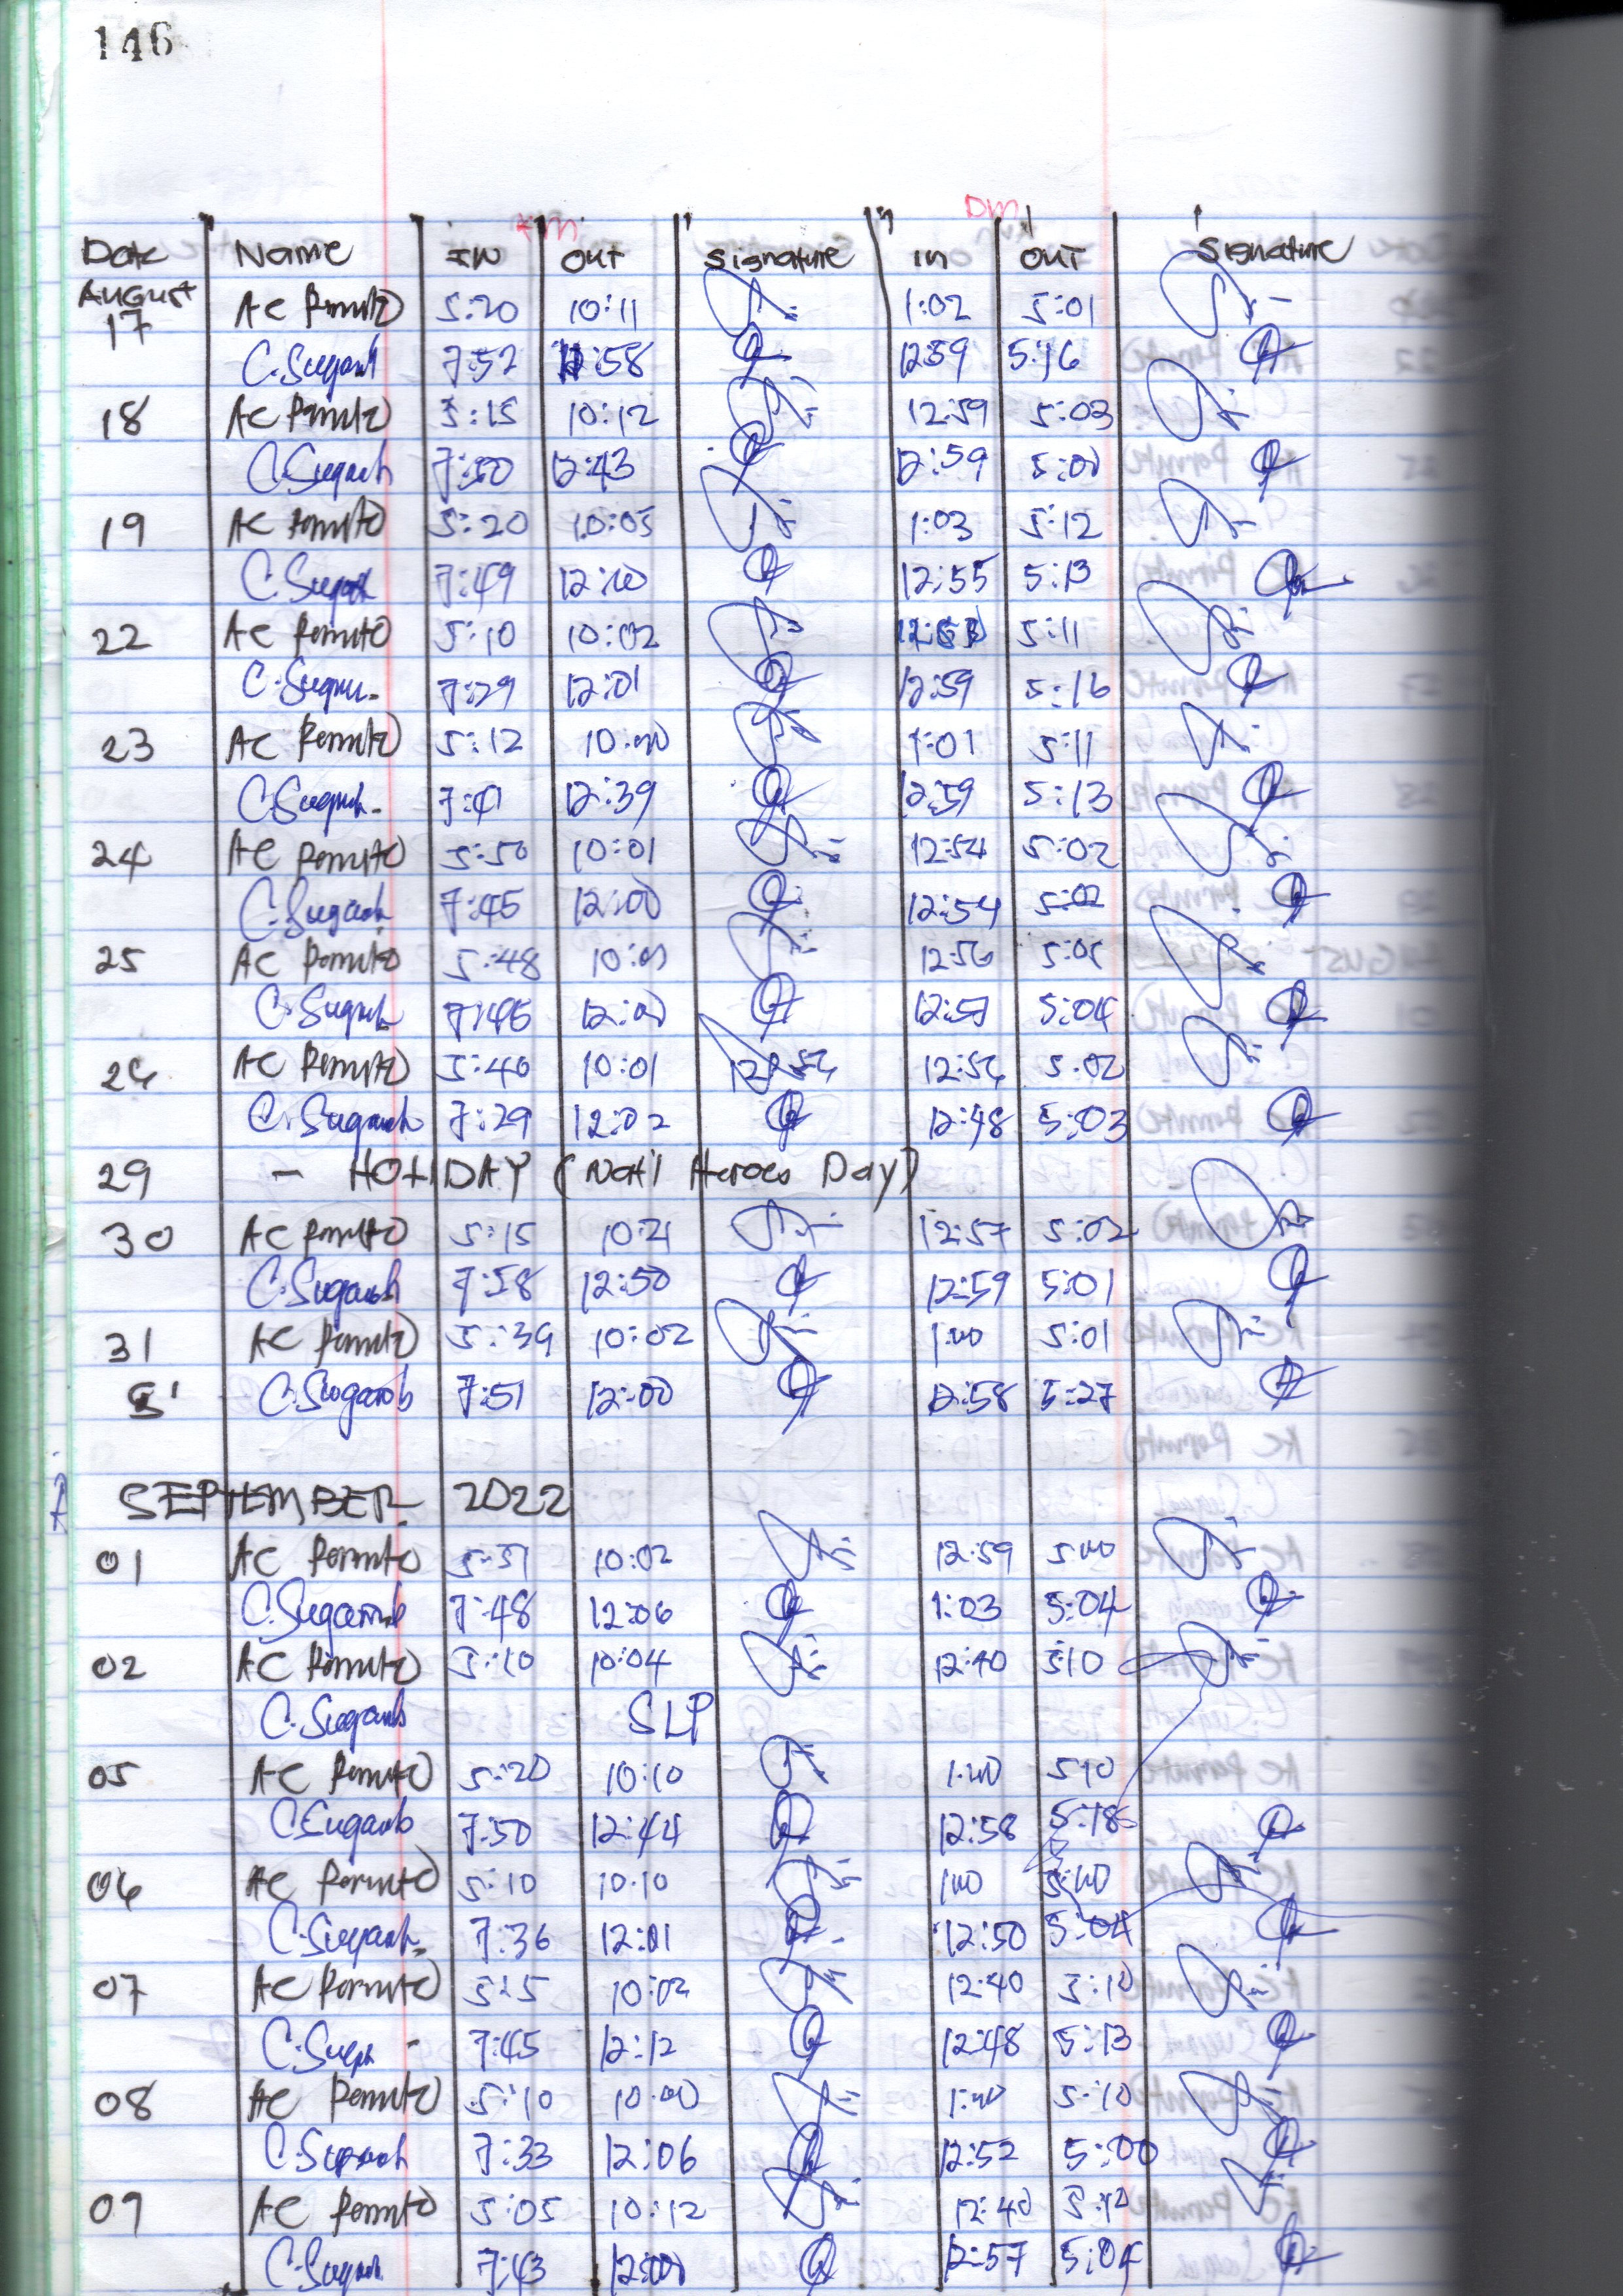 146
AM PM
Date Name IN OUT Signature In OUT Signature
August
17 AC Pormto 5:20 10:11 1:02 5:01
C. Suganob 7:52 12:58 12:59 5:16
18 AC Pormto 5:15 10:12 12:59 5:03
C. Suganob 7:50 12:43 12:59 5:00
19 AC Pormto 5:20 10:05 1:03 5:12
C. Suganob 7:49 12:10 12:55 5:13
22 AC Pormto 5:10 10:02 5:11
C. Suganob 7:29 12:01 12:59 5:16
23 AC Pormto 5:12 10:00 1:01 5:11
C. Suganob 7:41 12:39 12:59 5:13
24 AC Pormto 5:50 10:01 12:54 5:02
C. Suganob 7:45 12:00 12:54 5:02
25 AC Pormto 5:48 10:01 12:56 5:05
C. Suganob 7:45 12:00 12:57 5:04
26 AC Pormto 5:40 10:01 12:56 12:56 5:02
C. Suganob 7:29 12:02 12:48 5:03
29 - HOLIDAY (Nat'l Heroes Day)
30 AC Pormto 5:15 10:21 12:57 5:02
C. Suganob 7:58 12:50 12:59 5:01
31 AC Pormto 5:39 10:02 1:00 5:01
C. Suganob 7:51 12:00 12:58 5:27
SEPTEMBER 2022
01 AC Pormto 5:51 10:02 12:59 5:00
C. Suganob 7:48 12:06 1:03 5:04
02 AC Pormto 5:10 10:04 12:40 5:10
C. Suganob SLP
05 AC Pormto 5:20 10:10 1:00 5:10
C. Suganob 7:50 12:44 12:58 5:18
06 AC Pormto 5:10 10:10 1:00 5:10
C. Suganob 7:36 12:01 12:50 5:04
07 AC Pormto 5:15 10:02 12:40 5:10
C. Suganob 7:45 12:12 12:48 5:13
08 AC Pormto 5:10 10:00 1:00 5:10
C. Suganob 7:33 12:06 12:52 5:00
09 AC Pormto 5:05 10:12 12:40 5:12
C. Suganob 7:43 12:00 12:57 5:04